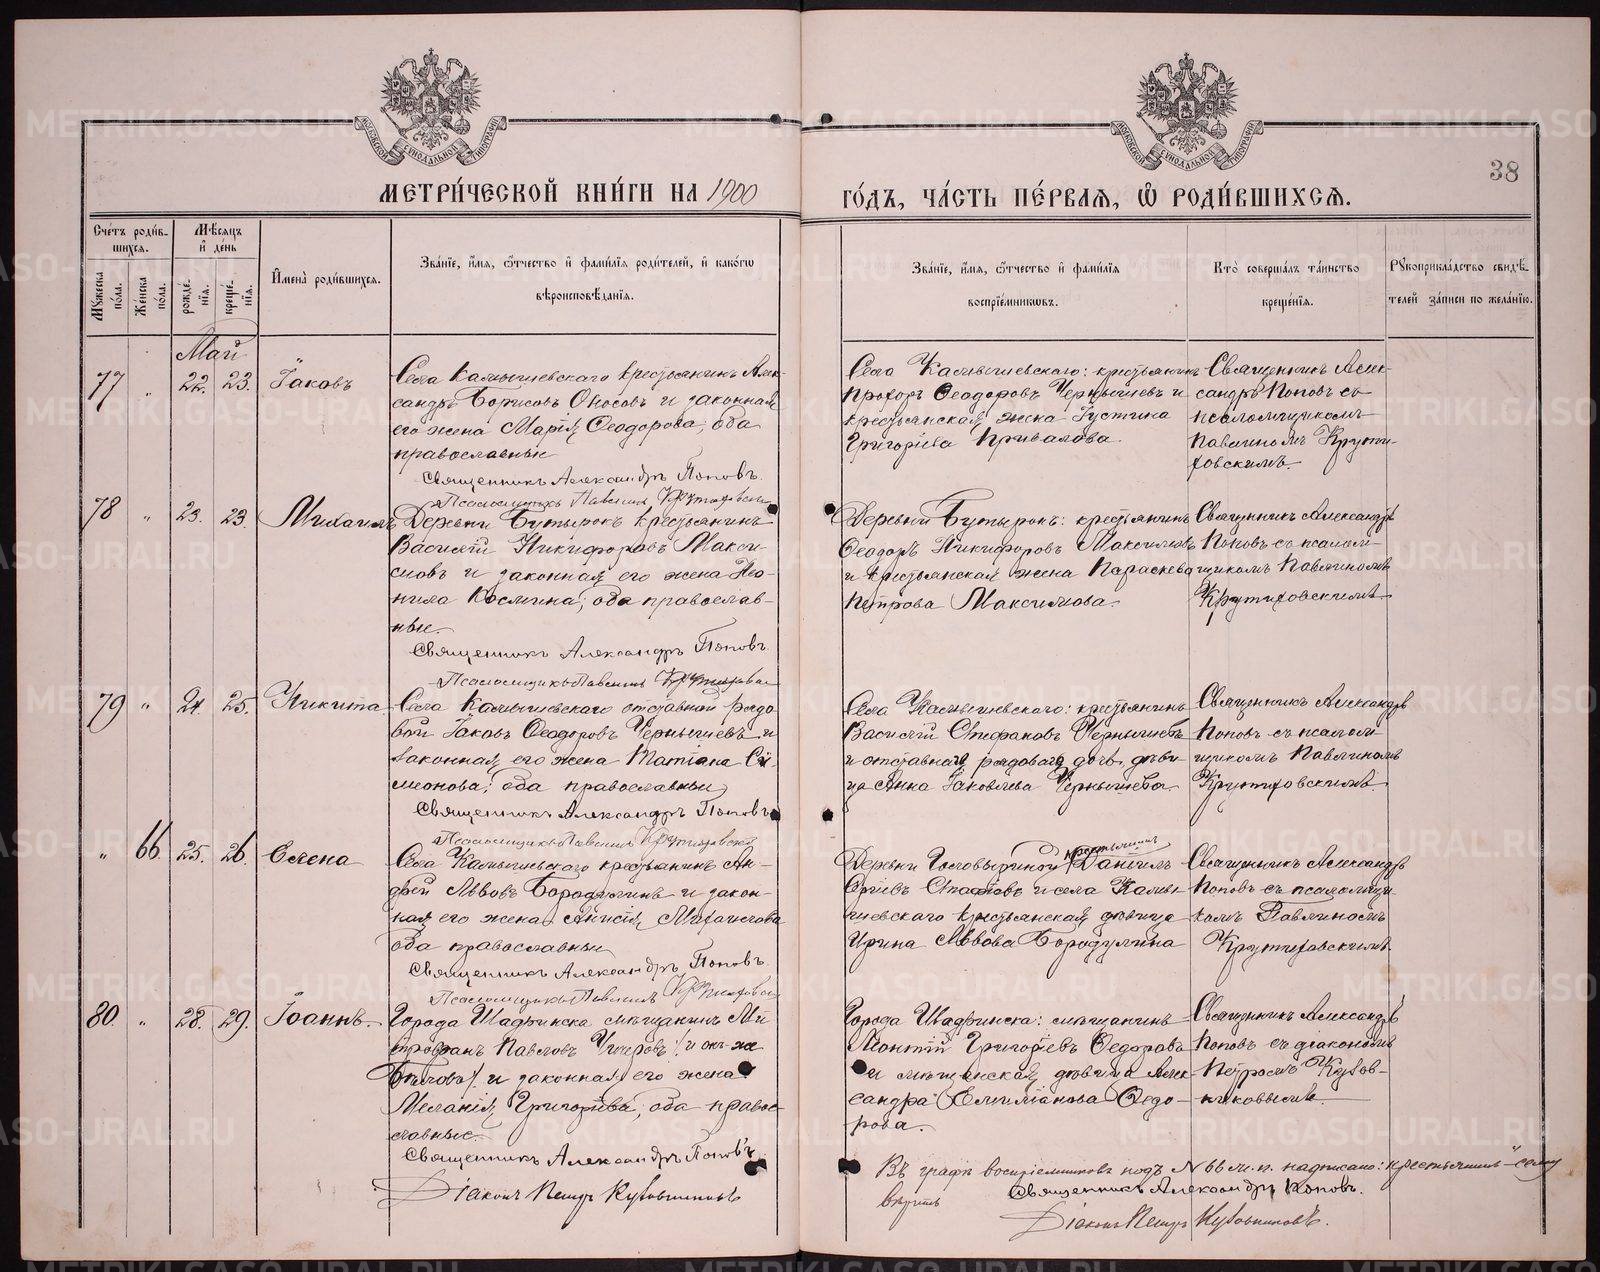 МЕТРИ́ЧЕСКОЙ КНИ́ГИ НА 1900
ГО́ДЪ, ЧА́СТЬ ПЕ́РВАЯ, Ѡ РОДИ́ВШИХСЯ.
38
МОСКОВСКОЙ СѴНОДАЛЬНОЙ ТИПОГРАФІИ
МОСКОВСКОЙ СѴНОДАЛЬНОЙ ТИПОГРАФІИ
Сче́тъ роди́в-
шихся.
Мѣ́сяцъ
и҆ де́нь
Мꙋ́жеска по́ла.
Же́нска по́ла.
рожде́нїѧ.
креще́нїѧ.
И҆мена̀ роди́вшихся.
Зва́нїе, и҆́мя, ѻ҆́тчество и҆ фами́лїя роди́телей, и҆ како́гѡ
вѣроисповѣ́данїя.
Зва́нїе, и҆́мя, ѻ҆́тчество и҆ фами́лїя
воспрїе́мникѡвъ.
Кто̀ соверша́лъ та́инство
креще́нїя.
Рꙋкоприкла́дство свидѣ́-
телей за́писи по жела́нїю.
Май
77 „ 22. 23. Іаковъ
Села Камышевскаго крестьянинъ Алек-
сандръ Борисовъ Окосовъ и законная
его жена Марія Ѳеодорова, оба
православные
Священникъ Александръ Поповъ.
Псаломщикъ Павлинъ Крутиховскій
Села Камышевскаго: крестьянинъ
Прохоръ Ѳеодоровъ Чернышевъ и
крестьянская жена Іустина
Григоріева Привалова.
Священникъ Алек-
сандръ Поповъ со
псаломщикомъ
Павлиномъ Крути-
ховскимъ.
78 „ 23. 23. Михаилъ
Деревни Бутырокъ крестьянинъ
Василій Никифоровъ Макси-
мовъ и законная его жена Нео-
нила Космина, оба православ-
ные.
Священникъ Александръ Поповъ.
Псаломщикъ Павлинъ Крутиховскій
Деревни Бутырокъ: крестьянинъ
Ѳеодоръ Никифоровъ Максимовъ
и крестьянская жена Параскева
Петрова Максимова.
Священникъ Александръ
Поповъ съ псалом-
щикомъ Павлиномъ
Крутиховскимъ
79 „ 24. 25. Никита
Села Камышевскаго отставной рядо-
вой Іаковъ Ѳеодоровъ Чернышевъ и
законная его жена Татіана Си-
меонова, оба православны
Священникъ Александръ Поповъ
Псаломщикъ Павлинъ Крутиховскій
Села Камышевскаго: крестьянинъ
Василій Стефановъ Чернышевъ
и отставнаго рядоваго дочь, дѣви-
ца Анна Іаковлева Чернышева
Священникъ Александръ
Поповъ съ псалом-
щикомъ Павлиномъ
Крутиховскимъ
„ 66. 25. 26. Елена
Села Камышевскаго крестьянинъ Ан-
дрей Львовъ Бородулинъ и закон-
ная его жена Анисія Михаилова
оба православны
Священникъ Александръ Поповъ.
Псаломщикъ Павлинъ Крутиховскій
крестьянинъ
Деревни Головыриной Даніилъ
и села Камы-
шевскаго крестьянская дѣвица
Ирина Львова Бородулина
Священникъ Александръ
Поповъ съ псаломщи-
комъ Павлиномъ
Крутиховскимъ
80. „ 28. 29. Іоаннъ.
Города Шадринска мѣщанинъ Ми-
трофанъ Павловъ
и законная его жена
Меланія Григоріева, оба право-
славные.
Священникъ Александръ Поповъ
Діаконъ Петръ Кубовниковъ
Города Шадринска: мѣщанинъ
Леонтій Григоріевъ Ѳедоровъ
и мѣщанская дѣвица Алек-
сандра Емиліанова Ѳедо-
рова.
Священникъ Александръ
Поповъ съ діакономъ
Петромъ Кубов-
никовымъ.
Въ графѣ воспріемниковъ подъ N 66 ж. п. надписано: „крестьянинъ“ сему
вѣрить
Священникъ Александръ Поповъ.
Діаконъ Петръ Кубовниковъ.